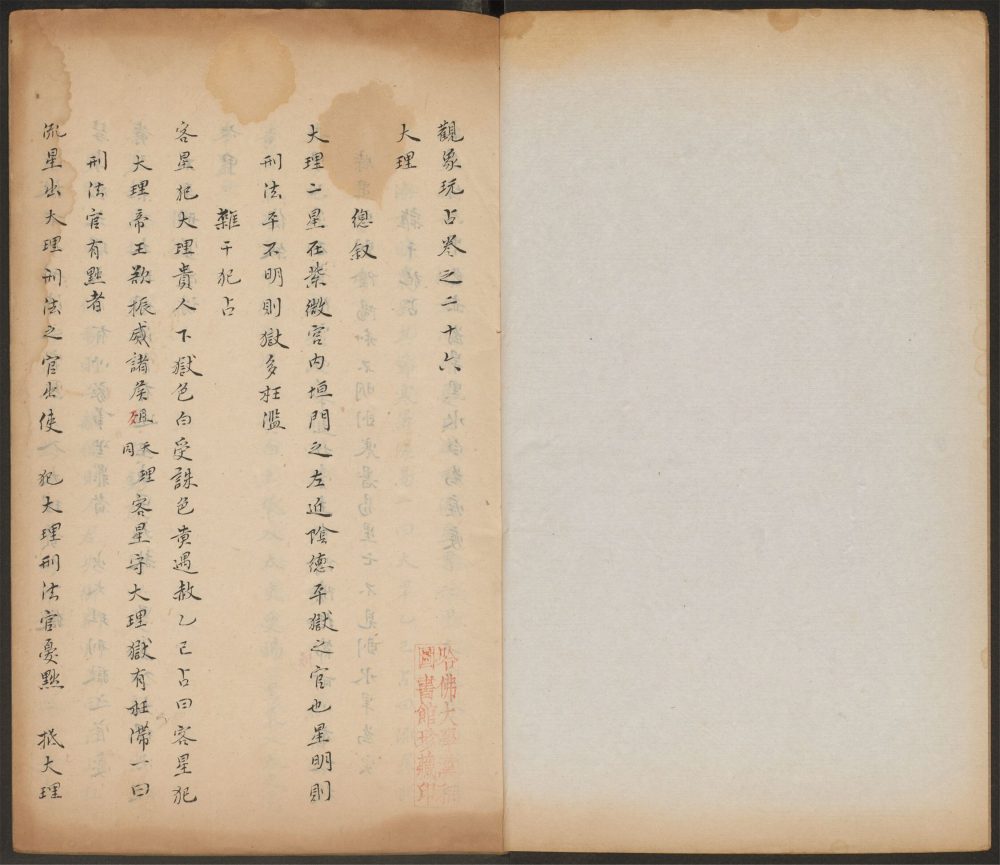 觀象玩占卷之二十六
大理
總叙
大理二星在紫微宮內垣門之左近陰德平獄之官也星明則
刑法平不明則獄多枉濫
雜干犯占
客星犯大理貴人下獄色白受誅色黄遇赦乙巳占曰客星犯
大理帝王欲振威諸侯俎天理同客星守大理獄有枉滯一曰
刑法官有黜者
流星出大理刑法之官出使 犯大理刑法官憂黜 抵大理
哈佛大學漢和
圖書館珍藏印